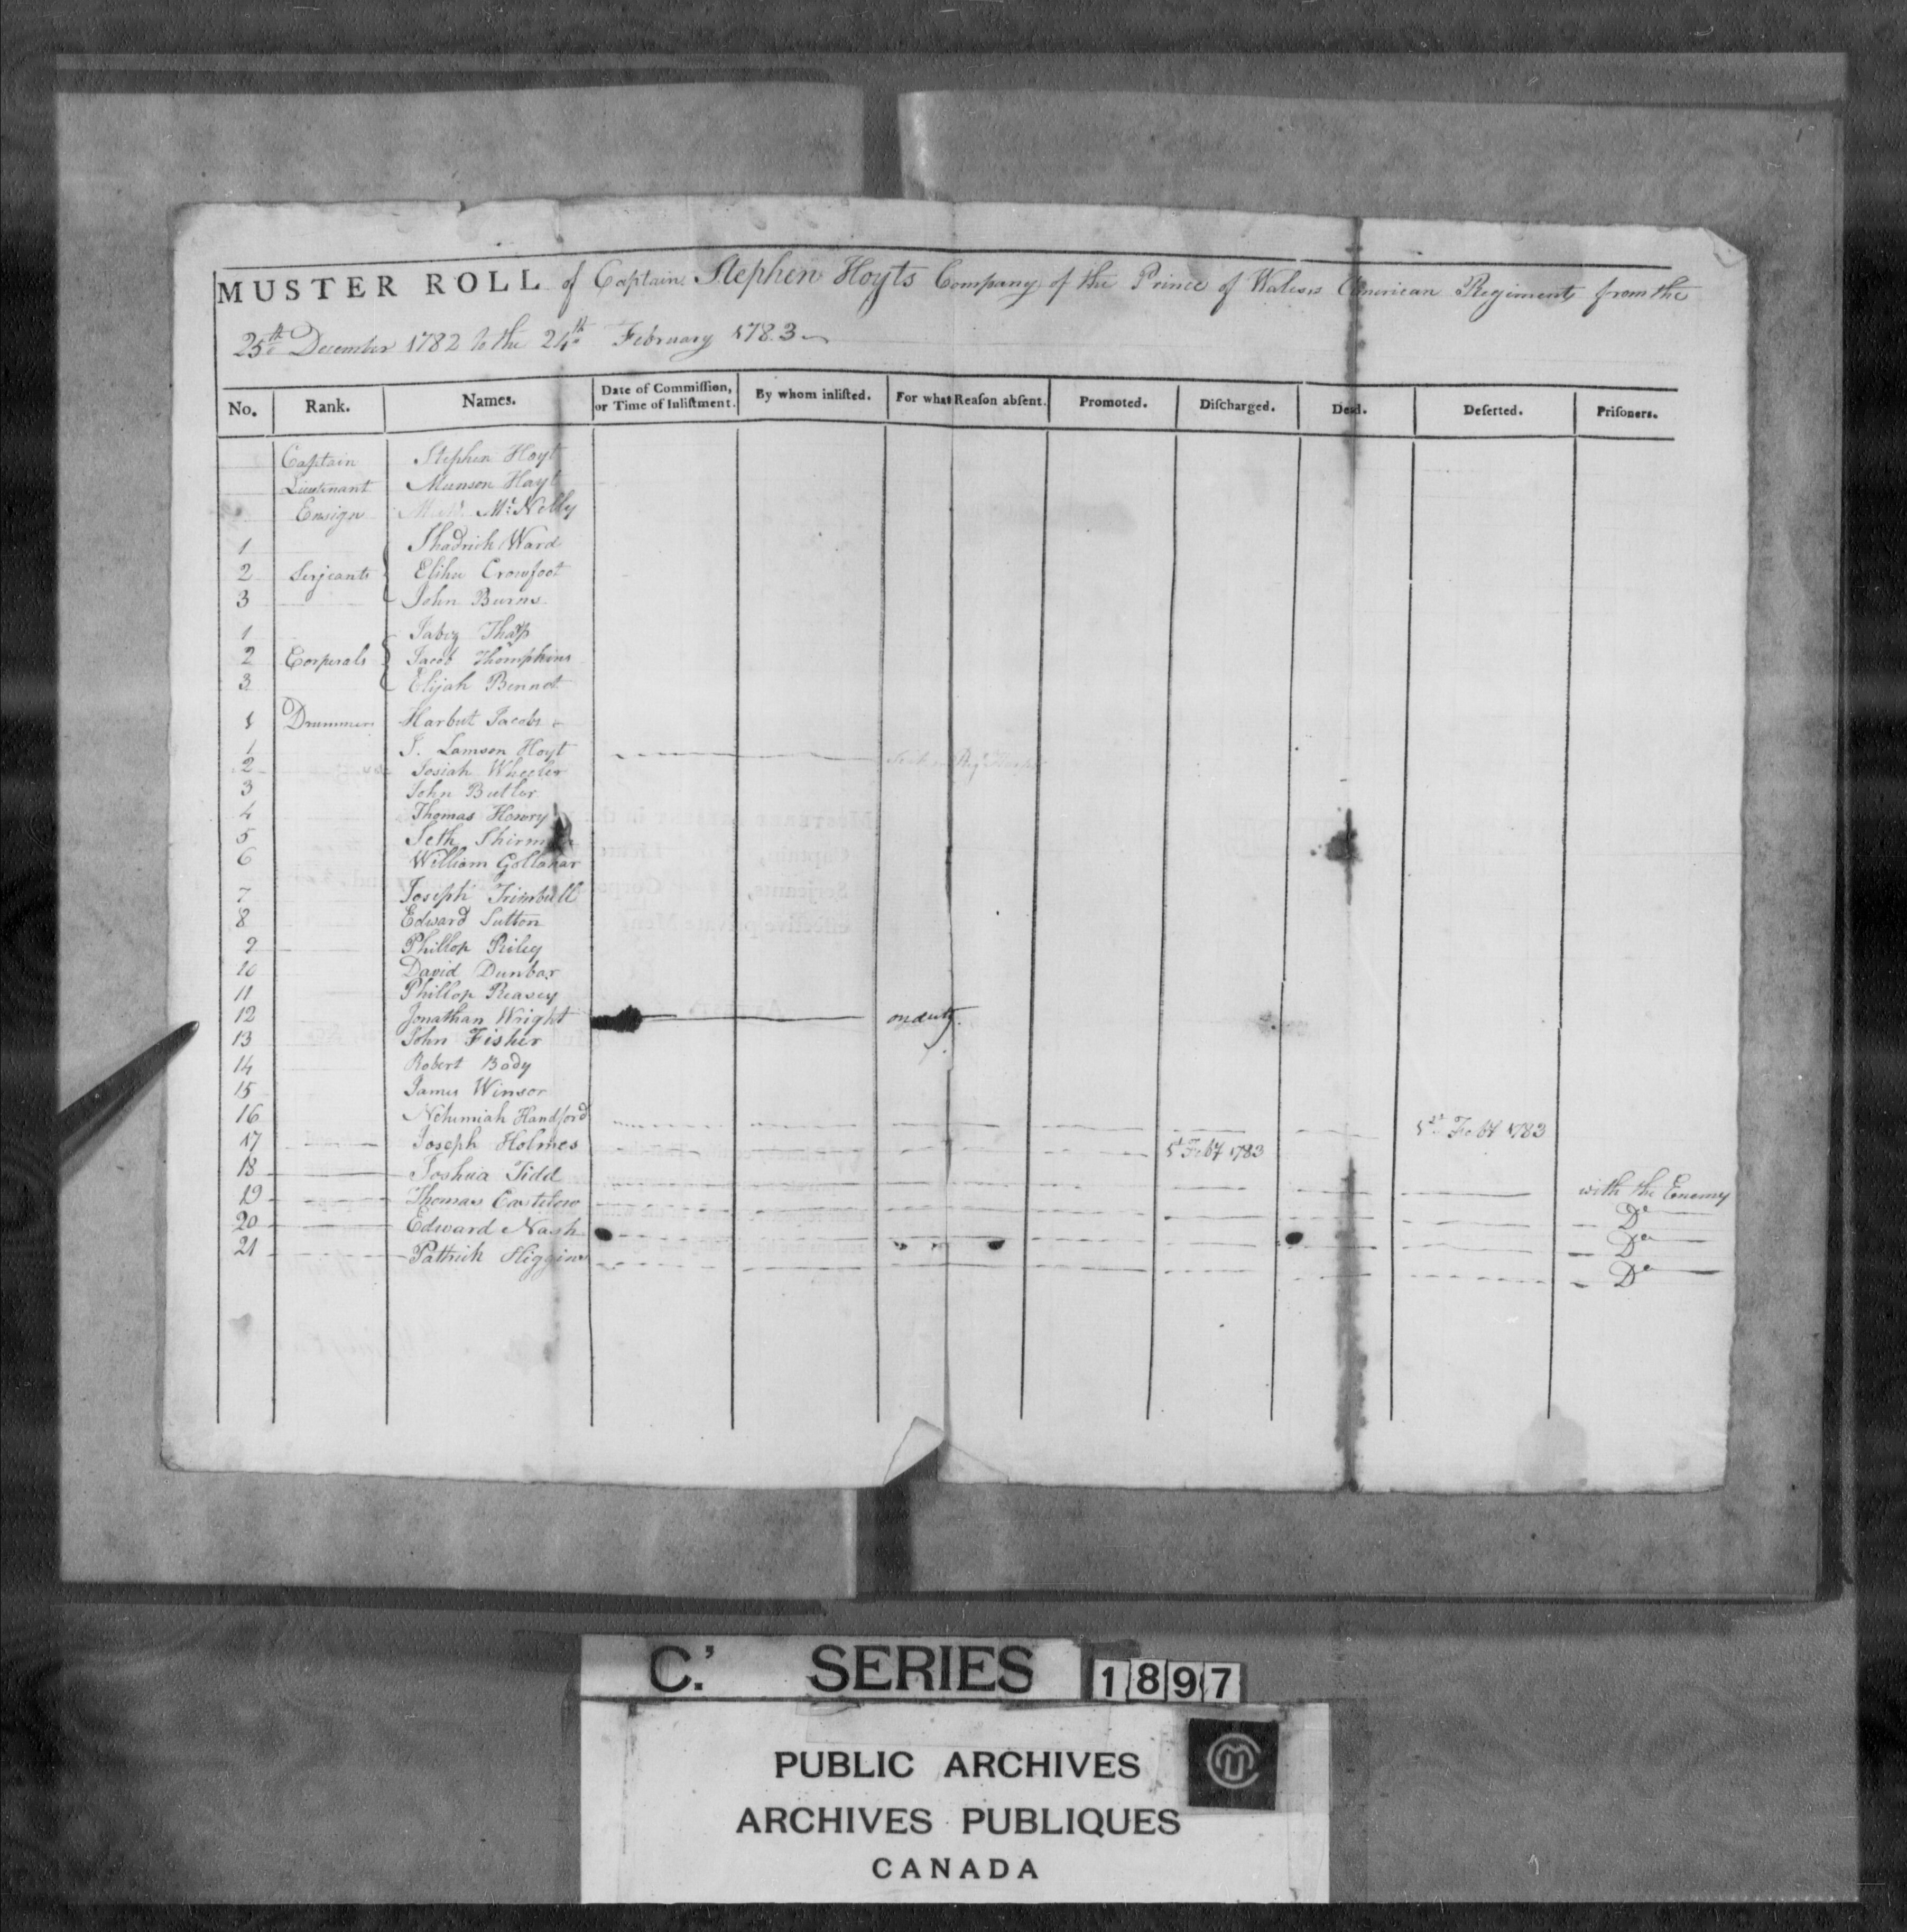 MUSTER ROLL of Captain Stephen Hoyts Company of the Prince of Waless American Regiment from the
25th December 1782 to the 24th February 1783
No. Rank. Names. Date of Commiſſion, or Time of Inliſtment. By whom inliſted. For what Reaſon abſent. Promoted. Diſcharged. Dead. Deſerted. Priſoners.
Captain Stephen Hoyt
Lieutenant Munson Hoyt
Ensign Mc Nelly
1 Shadrich Ward
2 Serjeants Elihu Crowfoot
3 John Burns
1 Jabez Thap
2 Corperals Jacob Thompkins
3 Elijah Bennot
1 Drummer Harbut Jacobs
1 J. Lamson Hoyt
2 Josiah Wheeler
3 John Butler
4 Thomas Henory
5 Seth
6 William Gollahar
7 Joseph Trimbull
8 Edward Sutton
9 Phillop Riley
10 David Dunbar
11 Phillop Reavey
12 Jonathan Wright on duty.
13 John Fisher
14 Robert Body
15 James Winsor
16 Nehemiah Handford Feby 1783
17 Joseph Holmes 1st Feby 1783
18 Joshua Tidd with the Enemy
19 Thomas Castelow Do
20 Edward Nash Do
21 Pattrick Higgins Do
C.' SERIES 1897
PUBLIC ARCHIVES
ARCHIVES PUBLIQUES
CANADA